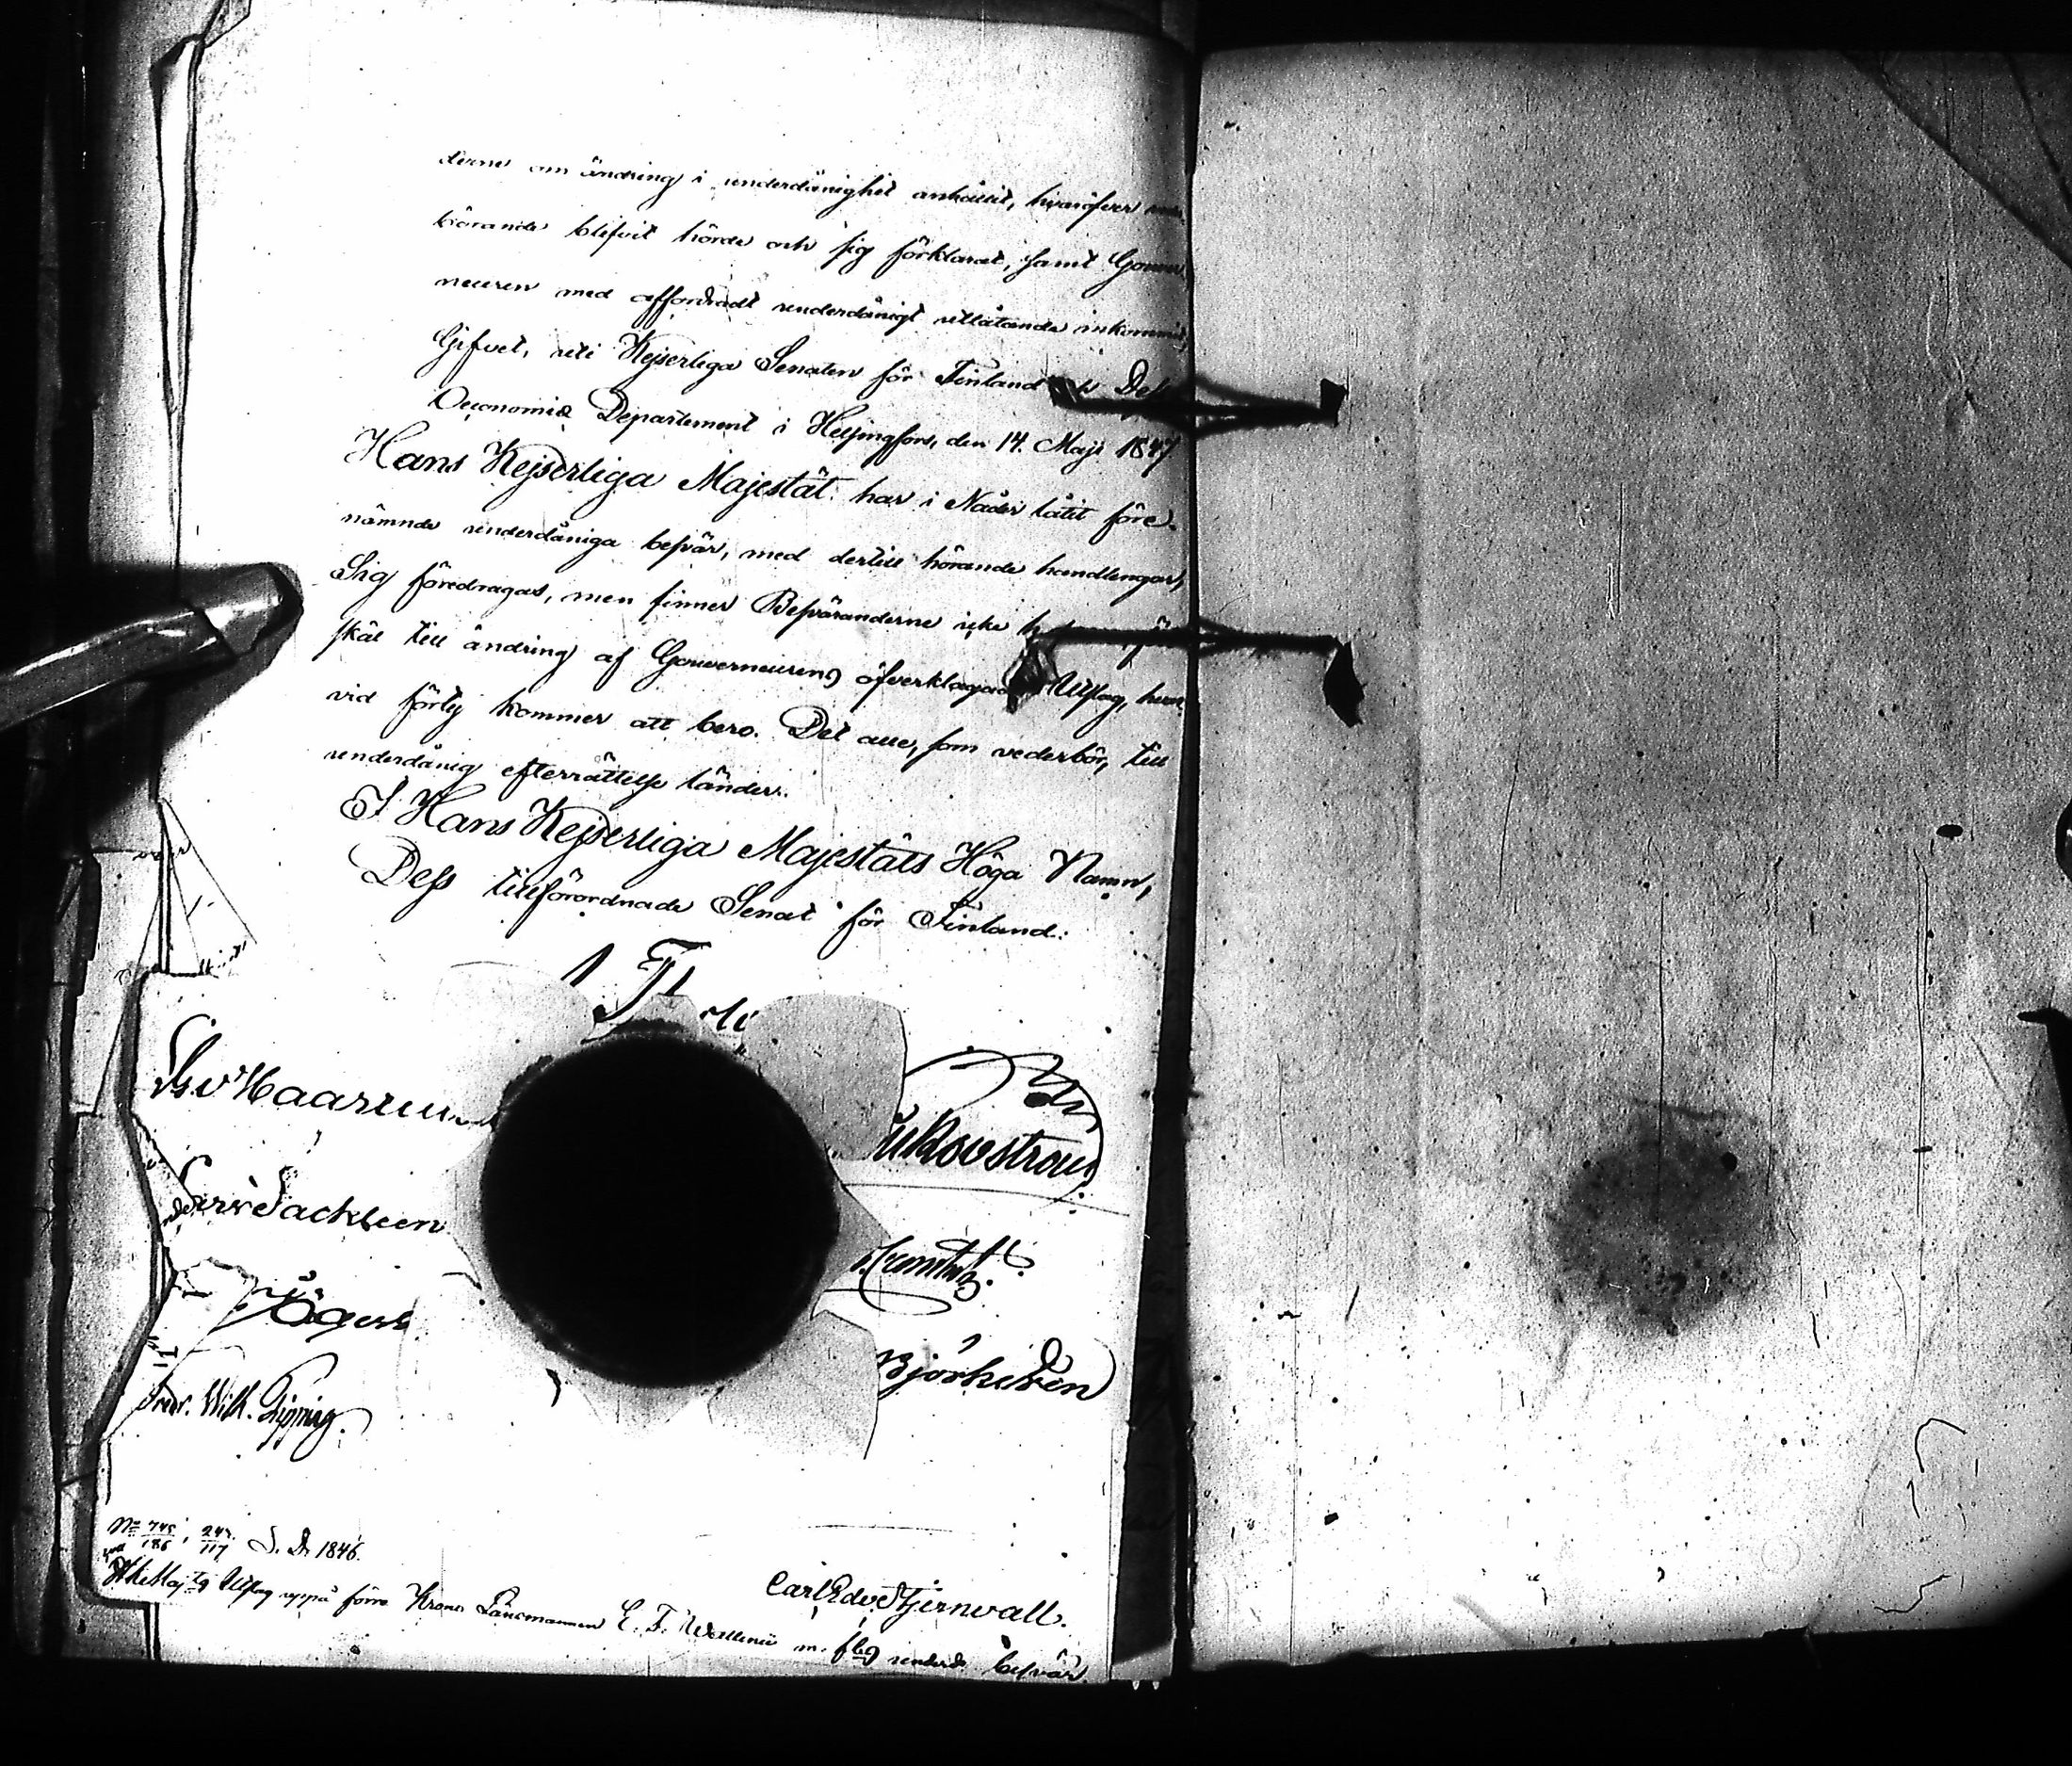 derne om ändring i underdånighet anhållit, hvaröfver
hörande blifvit hörde och sig förklarat, samt Gouver
neuren med affordradt underdånigt utlåtande inkommit;
Gifvet, uti Kejserliga Senaten för Finland
Oeconomie Departement i Helsingfors, den 14. Maji 1847.
Hans Kejserliga Majestät har i Nåder låtit före-
nämnde underdåniga besvär, med dertill hörande handlingar,
Sig föredragas, men finner Besväranderne icke
skäl till ändring af Gouverneurens öfverklagade Utslag, hvar
vid förty kommer att bero. Det alle, som vederbör, till
underdånig efterrättelse länder.
I Hans Kejserliga Majestäts Höga Namn,
Dess tillförordnade Senat för Finland:
Haartm
Sackleen
Fredr. Wilh. Pipping.
Björksten
Carl Edv Stjernvall.
No 745/186, 247/117 S. D. 1846.
Utslag uppå förre Krono Länsmannen E. F. Wallenii m. fleg underd. besvär.